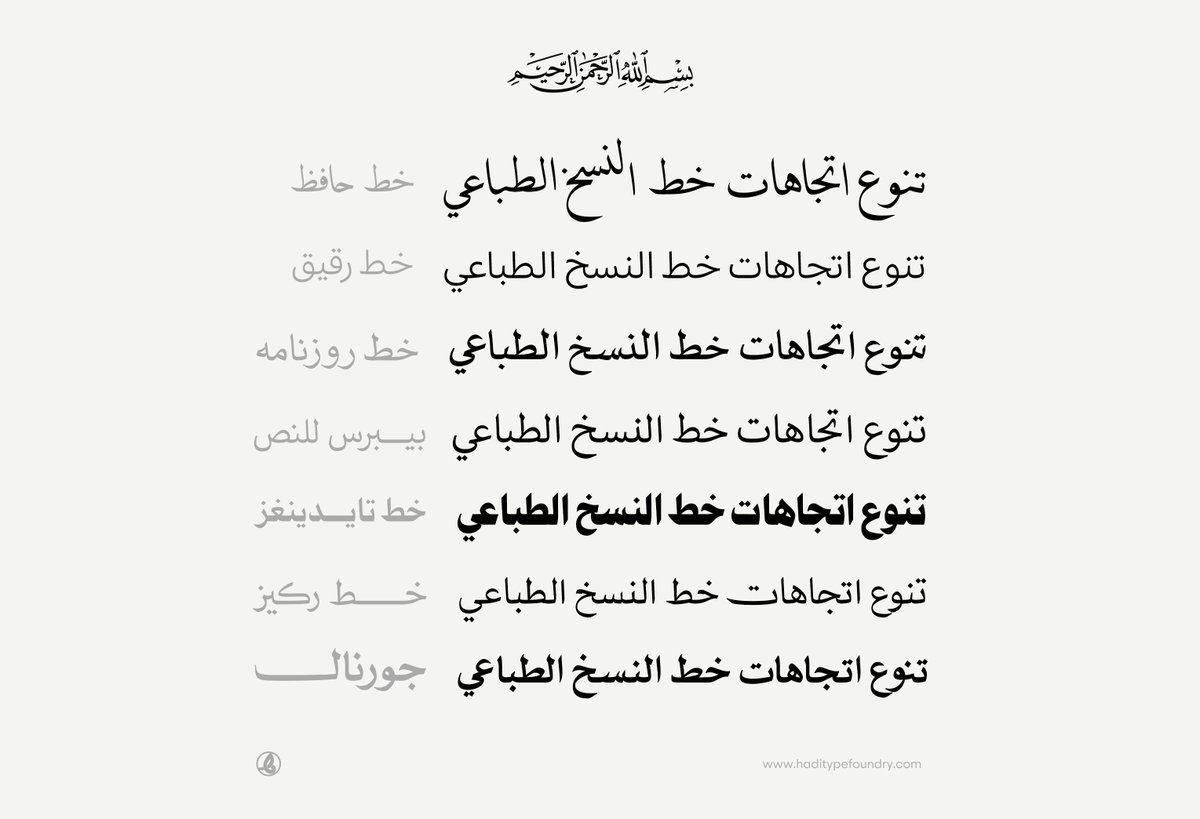 بِسْمِ اللهِ الرَّحْمٰنِ الرَّحِيْمِ
تنوع اتجاهات خط النسخ الطباعي خط حافظ
تنوع اتجاهات خط النسخ الطباعي خط رقيق
تنوع اتجاهات خط النسخ الطباعي خط روزنامه
تنوع اتجاهات خط النسخ الطباعي بيـــبرس للنص
تنوع اتجاهات خط النسخ الطباعي خط تايـــدينغز
تنوع اتجاهات خط النسخ الطباعي خـــــط ركيز
تنوع اتجاهات خط النسخ الطباعي جورنالـــــــ
www.haditypefoundry.com